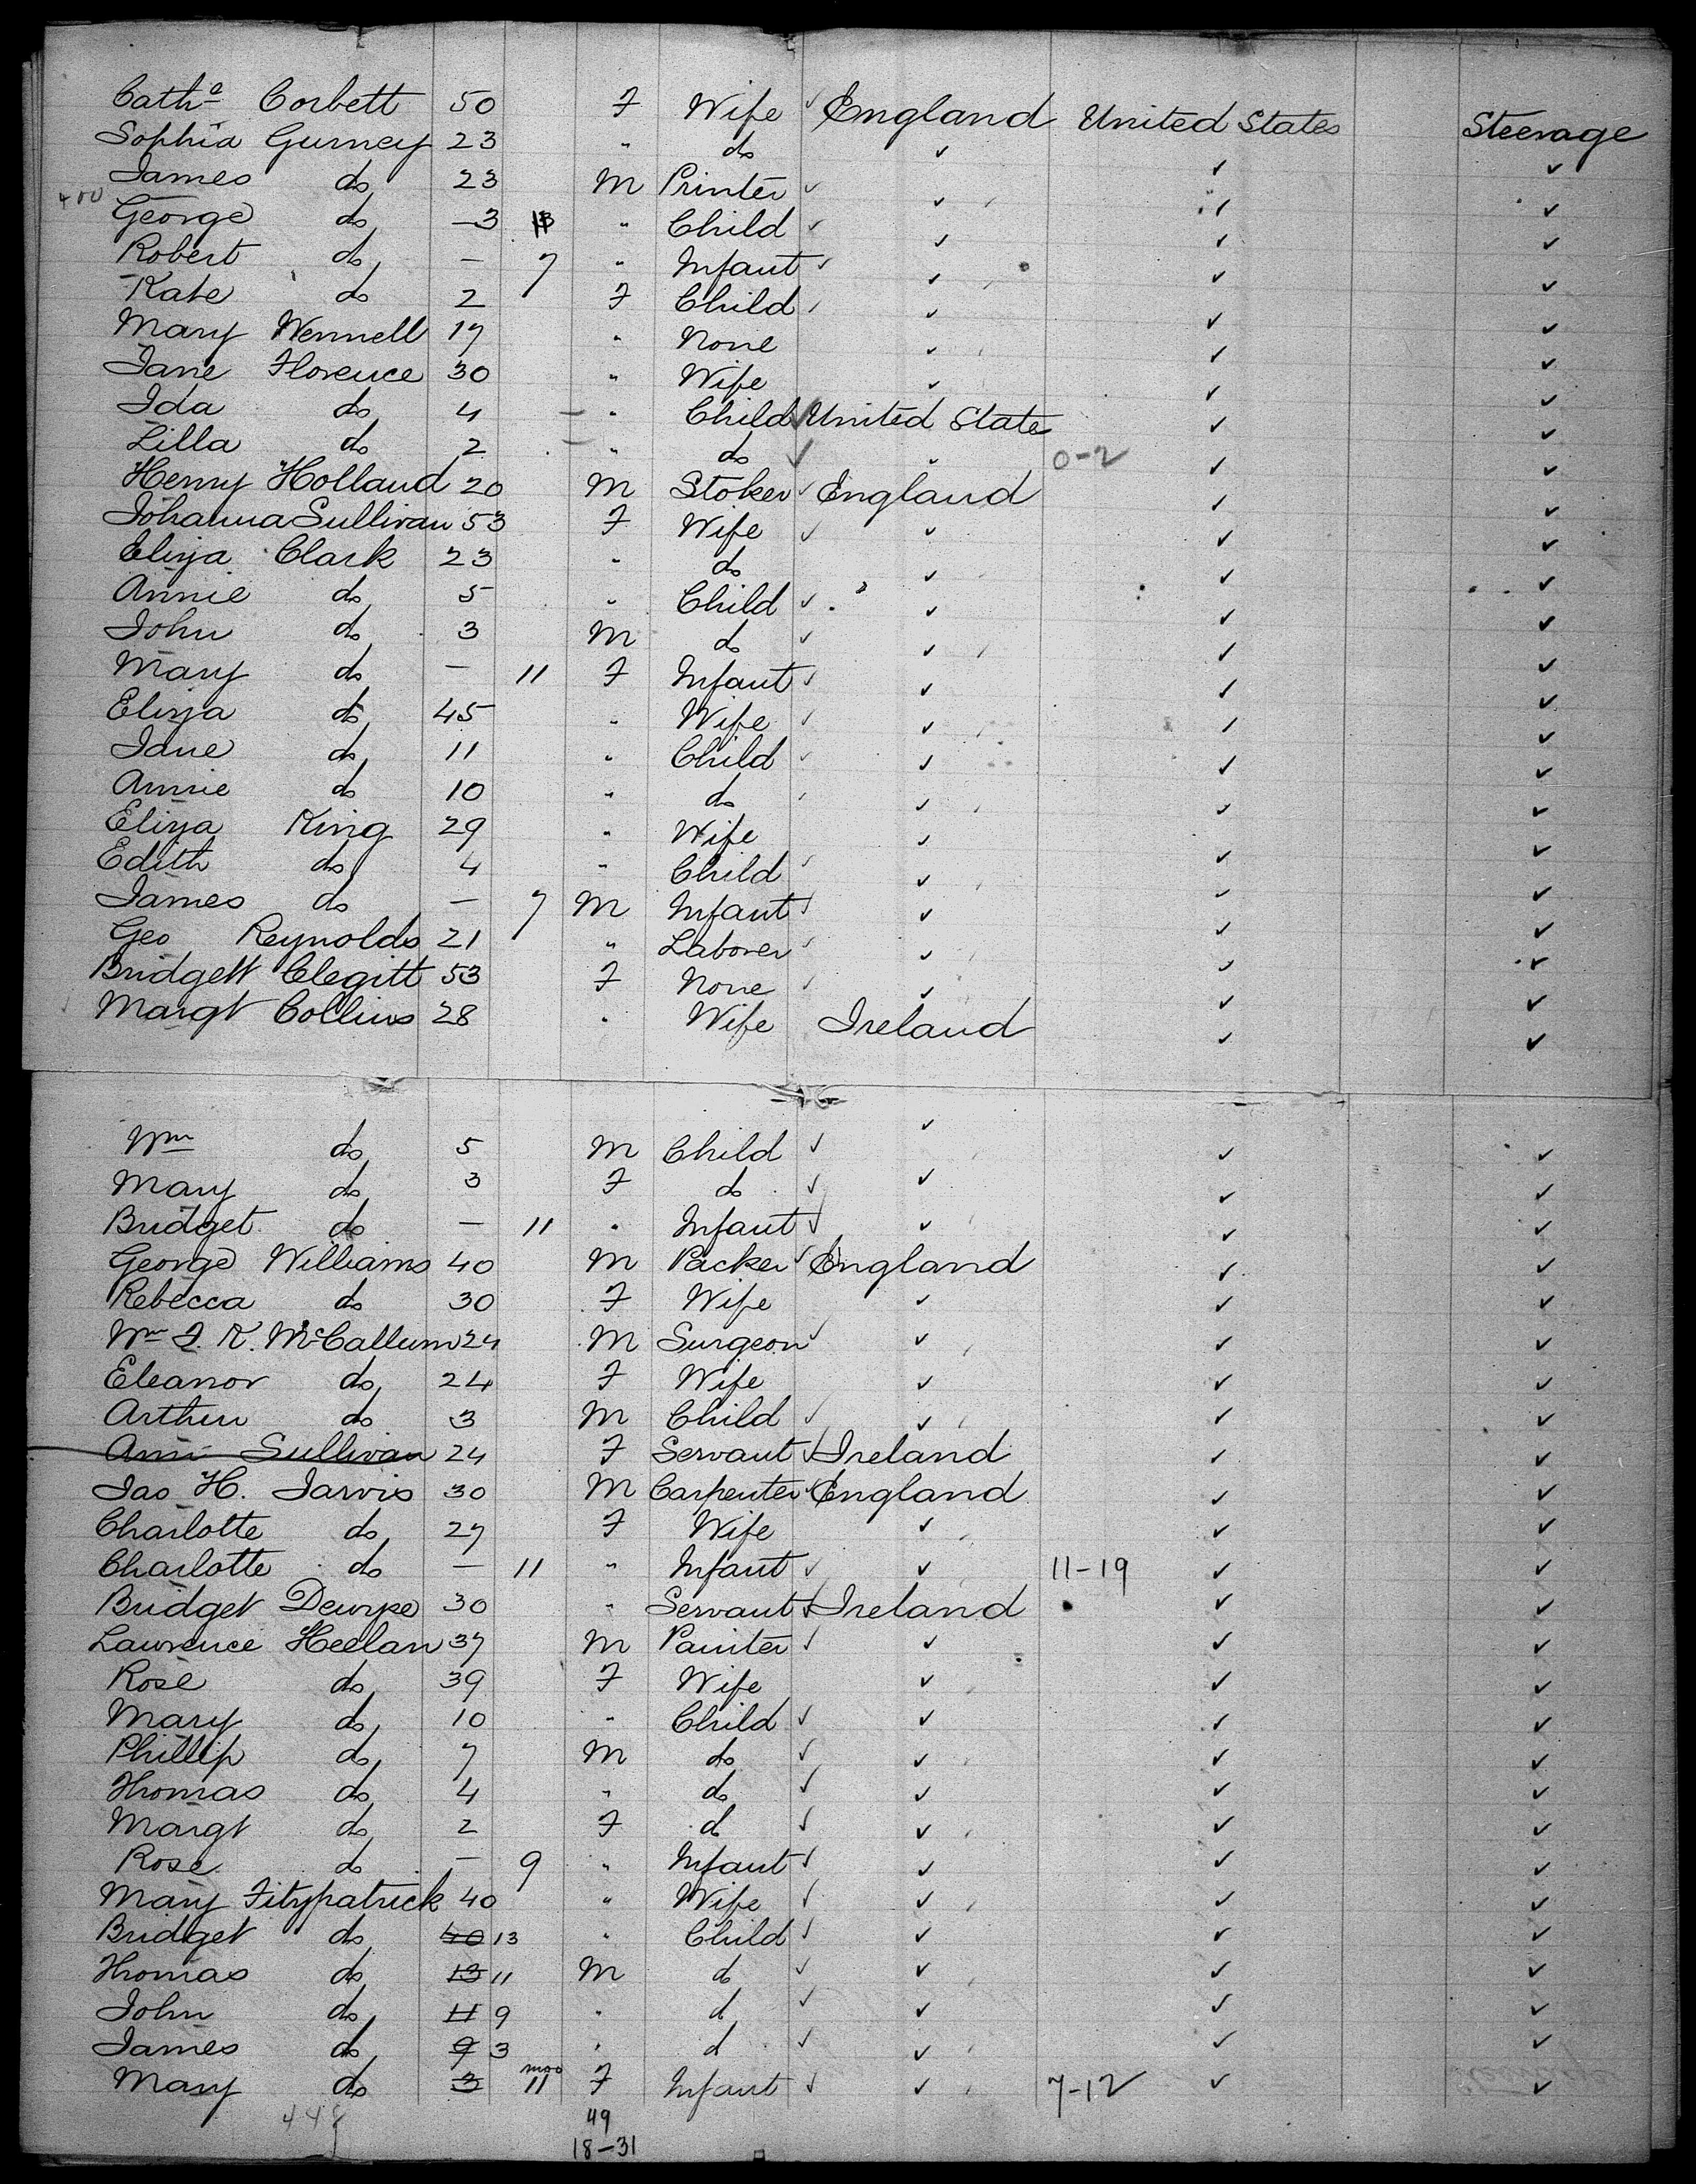 Cath a Corbett 50 F Wife ✓ England United States Steerage
Sophia Gurney 23 " do ✓ ✓ ✓
James do 23 M Printer ✓ ✓ ✓ ✓
400
George do — 3 " Child ✓ ✓ ✓ ✓
Robert do — 7 " Infant ✓ ✓ ✓ ✓
Kate do 2 F Child ✓ ✓ ✓ ✓
Mary Wennell 17 " None ✓ ✓ ✓
Jane Florence 30 " Wife ✓ ✓ ✓
Ida do 4 — " Child ✓ United State ✓ ✓
Lilla do 2 — " do ✓ ✓ 0-2 ✓ ✓
Henry Holland 20 M Stoker ✓ England ✓ ✓
Johanna Sullivan 53 F Wife ✓ ✓ ✓ ✓
Eliza Clark 23 " do ✓ ✓ ✓
Annie do 5 " Child ✓ ✓ ✓ ✓
John do 3 M do ✓ ✓ ✓ ✓
Mary do — 11 F Infant ✓ ✓ ✓ ✓
Eliza do 45 " Wife ✓ ✓ ✓ ✓
Jane do 11 " Child ✓ ✓ ✓ ✓
Annie do 10 " do ✓ ✓ ✓ ✓
Eliza King 29 " Wife ✓ ✓ ✓
Edith do 4 " Child ✓ ✓ ✓ ✓
James do — 7 M Infant ✓ ✓ ✓ ✓
Geo Reynolds 21 " Laborer ✓ ✓ ✓ ✓
Bridgett Clegitt 53 F None ✓ ✓ ✓ ✓
Margt Collins 28 " Wife Ireland ✓ ✓
Wm do 5 M Child ✓ ✓ ✓ ✓
Mary do 3 F do ✓ ✓ ✓ ✓
Bridget do — 11 " Infant ✓ ✓ ✓ ✓
George Williams 40 M Packer ✓ England ✓ ✓
Rebecca do 30 F Wife ✓ ✓ ✓
Wm F. K. McCallum 24 M Surgeon ✓ ✓ ✓ ✓
Eleanor do 24 F Wife ✓ ✓ ✓
Arthur do 3 M Child ✓ ✓ ✓ ✓
Ann Sullivan 24 F Servant ✓ Ireland ✓ ✓
Jas H. Jarvis 30 M Carpenter ✓ England ✓ ✓
Charlotte do 27 F Wife ✓ ✓ ✓
Charlotte do — 11 " Infant ✓ ✓ 11-19 ✓ ✓
Bridget 30 " Servant ✓ Ireland ✓ ✓
Lawrence Heelan 37 M Painter ✓ ✓ ✓ ✓
Rose do 39 F Wife ✓ ✓ ✓
Mary do 10 " Child ✓ ✓ ✓ ✓
Phillip do 7 M do ✓ ✓ ✓ ✓
Thomas do 4 " do ✓ ✓ ✓ ✓
Margt do 2 F d ✓ ✓ ✓ ✓
Rose do — 9 " Infant ✓ ✓ ✓ ✓
Mary Fitzpatrick 40 " Wife ✓ ✓ ✓ ✓
Bridget do 40 13 " Child ✓ ✓ ✓ ✓
Thomas do 13 11 M d ✓ ✓ ✓ ✓
John do 11 9 " d ✓ ✓ ✓ ✓
James do 9 3 " d ✓ ✓ ✓ ✓
Mary do 3 mos 11 F Infant ✓ ✓ 7-12 ✓ ✓
448 49
18-31